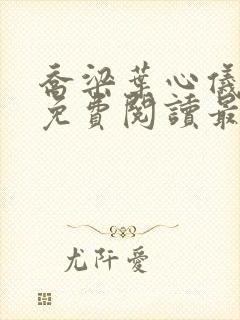 喬梁葉心儀
免費閱讀最
尤阡愛